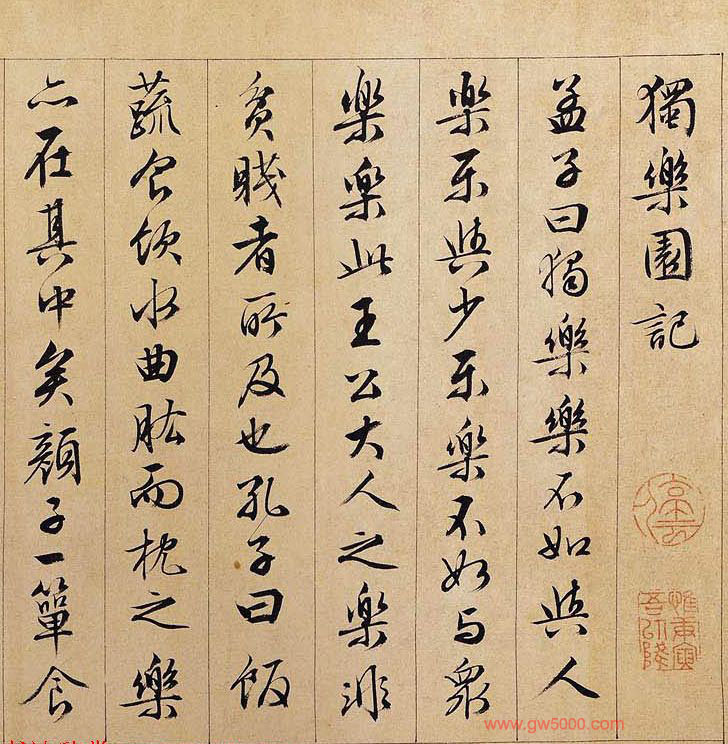 獨樂園記
孟子曰獨樂樂不如與人
樂樂與少樂樂不如与衆
樂樂此王公大人之樂非
貧賤者所及也孔子曰飯
蔬食飲水曲肱而枕之樂
亦在其中矣顏子一簞食
停雲
惟庚寅吾以降
www.gw5000.com